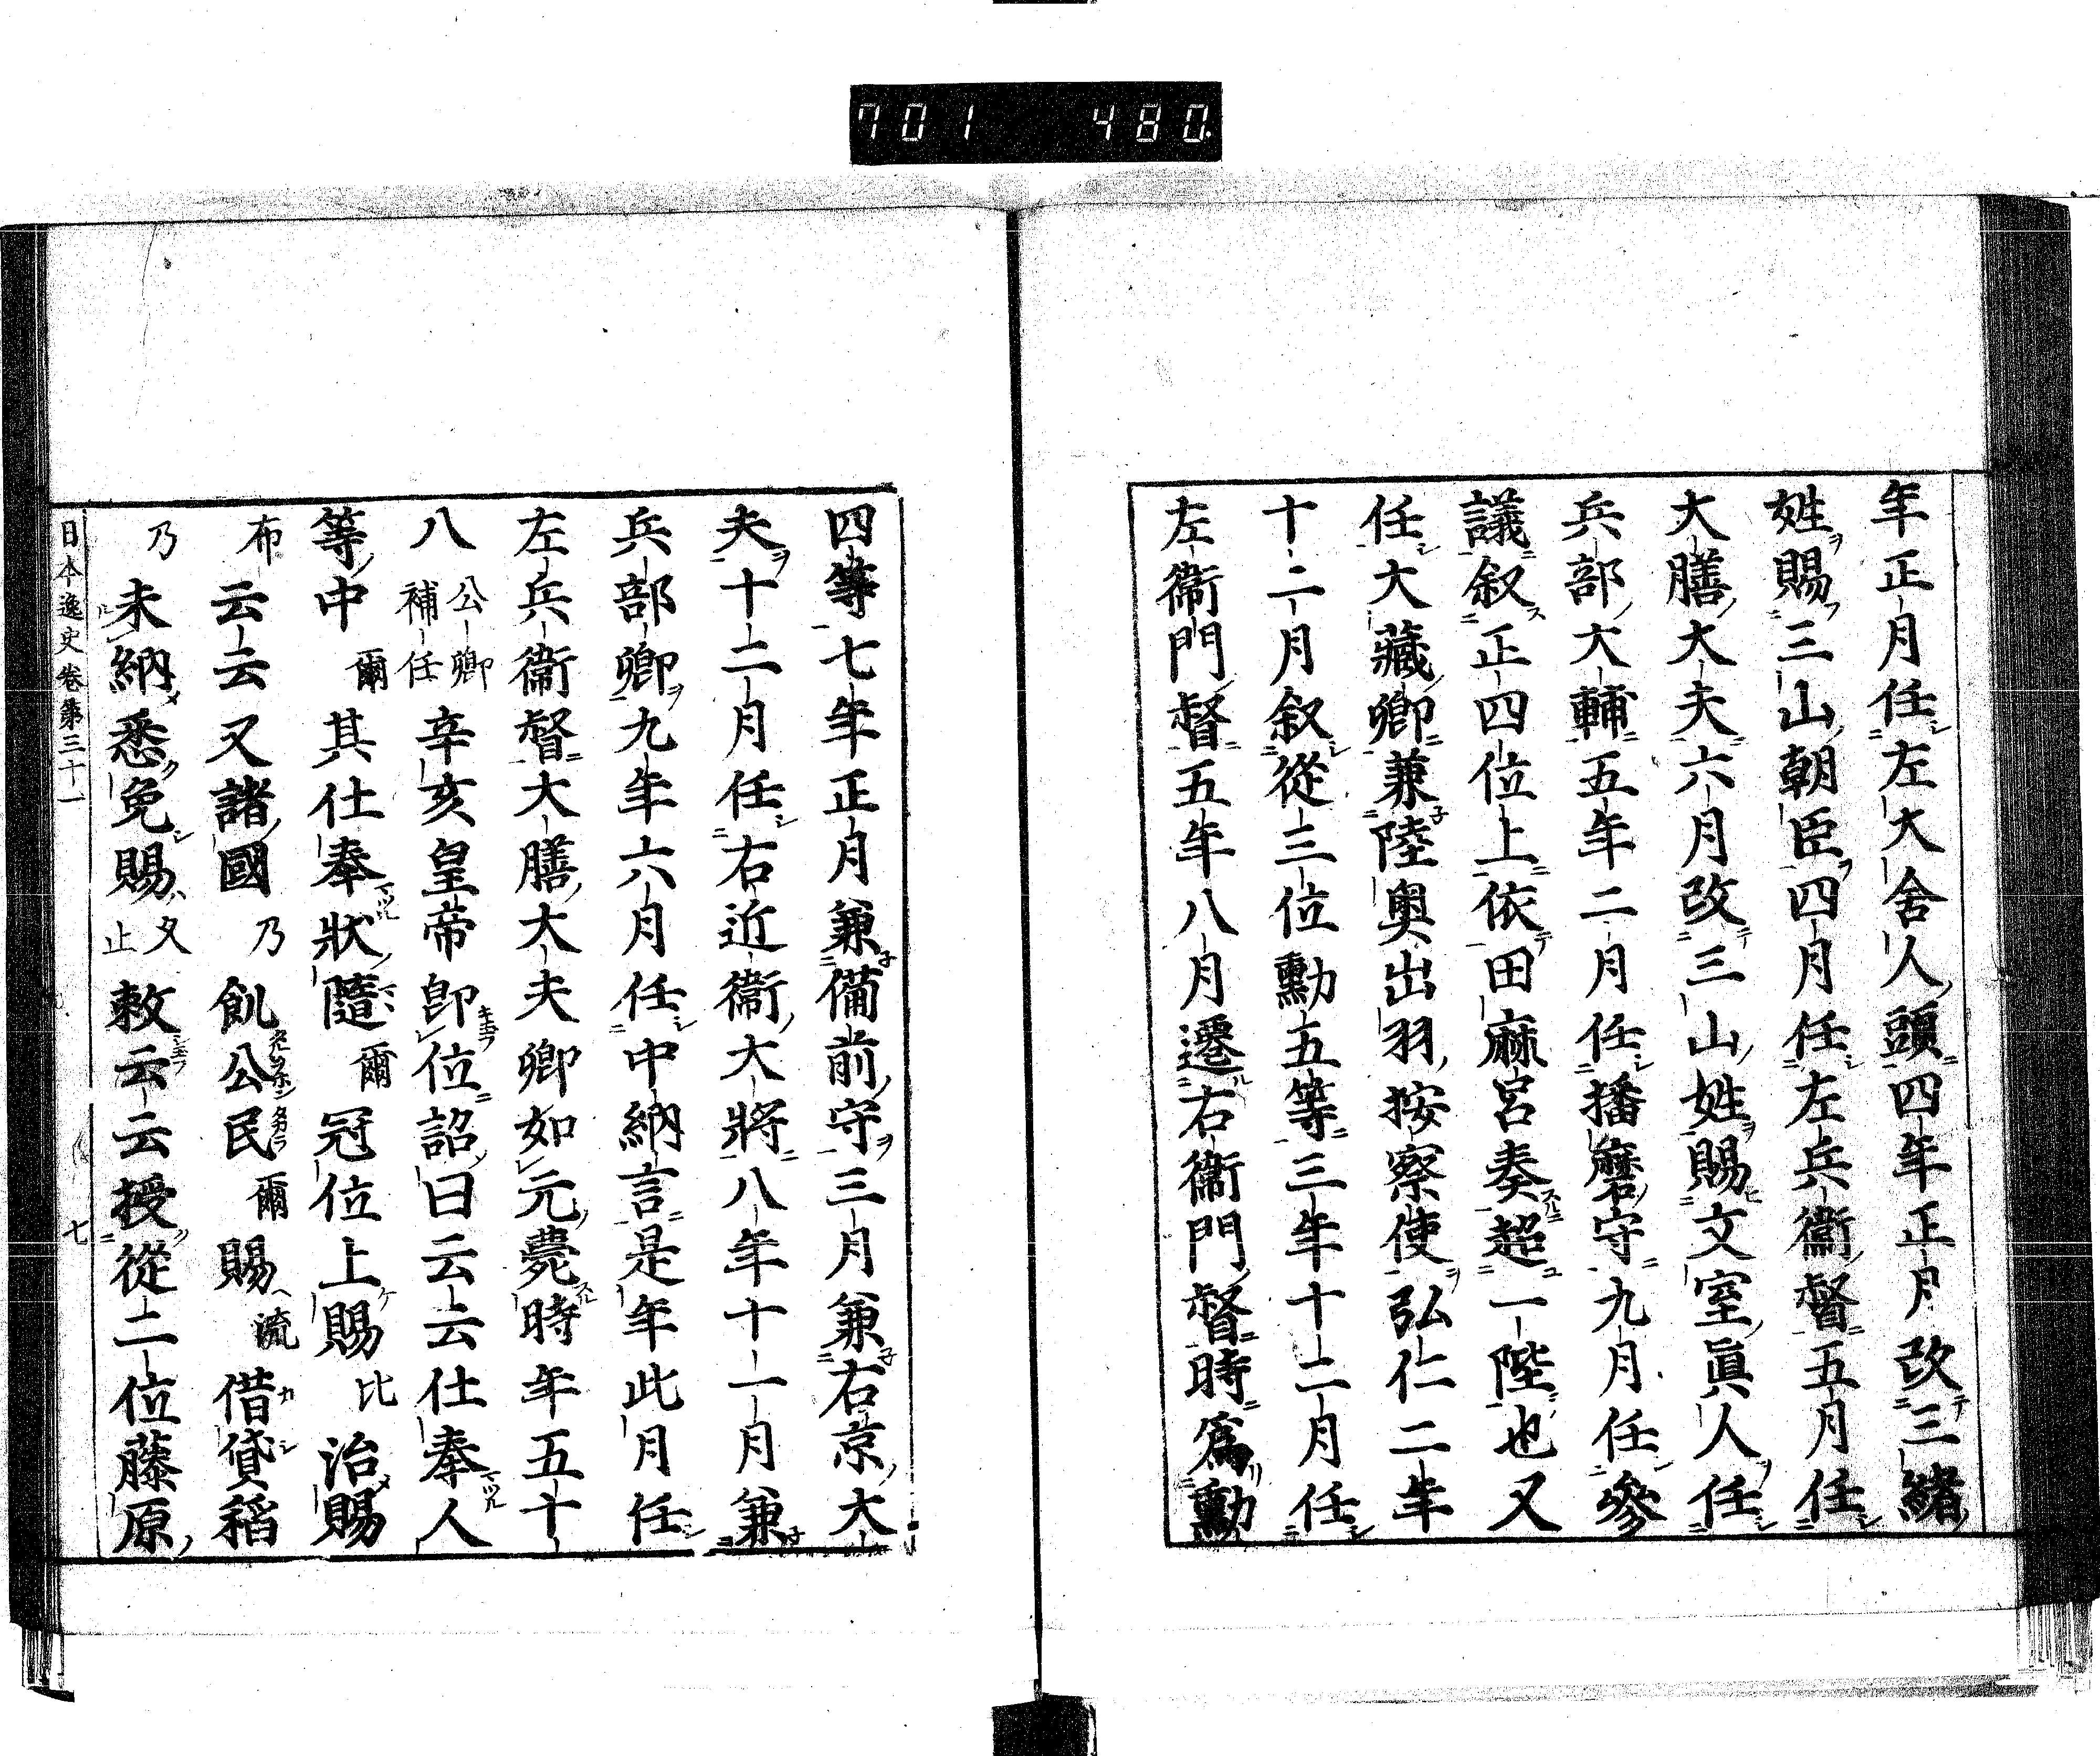 701 480
年正月任左大舍人頭四年正月改三緒
姓賜三山朝臣四月任左兵衞督五月任
大膳大夫六月改三山姓賜文室眞人任
兵部大輔五年二月任播磨守九月任參
議叙正四位上依田麻呂奏超一階也又
任大藏卿兼陸奧出羽按察使弘仁二年
十二月叙從三位勳五等三年十二月任
左衞門督五年八月遷右衞門督時爲勳
四等七年正月兼備前守三月兼右京大
夫十二月任右近衞大將八年十一月兼
兵部卿九年六月任中納言是年此月任
左兵衞督大膳大夫卿如元薨時年五十
八公卿補任辛亥皇帝卽位詔曰云云仕奉人
等中爾其仕奉狀隨爾冠位上賜比治賜
布云云又諸國乃飢公民爾賜流借貸稻
乃未納悉免賜又止敕云云授從二位藤原
日本逸史卷第三十一 七